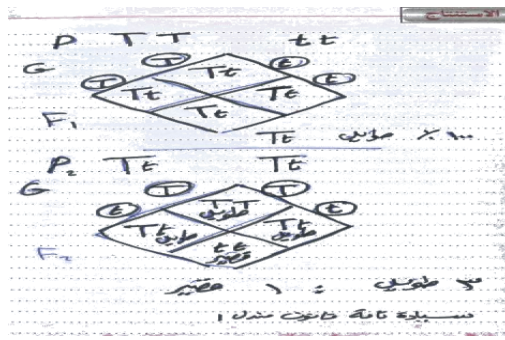 الاستنتاج
P TT tt
G T T t t
Tt
Tt Tt
Tt
F₁ Tt ١٠٠ ٪ طويل
P₂ Tt Tt
G t T T t
TT طويل
Tt طويل Tt طويل
tt قصير
F₂
٣ طويل : ١ قصير
سيادة تامة قانون مندل ١